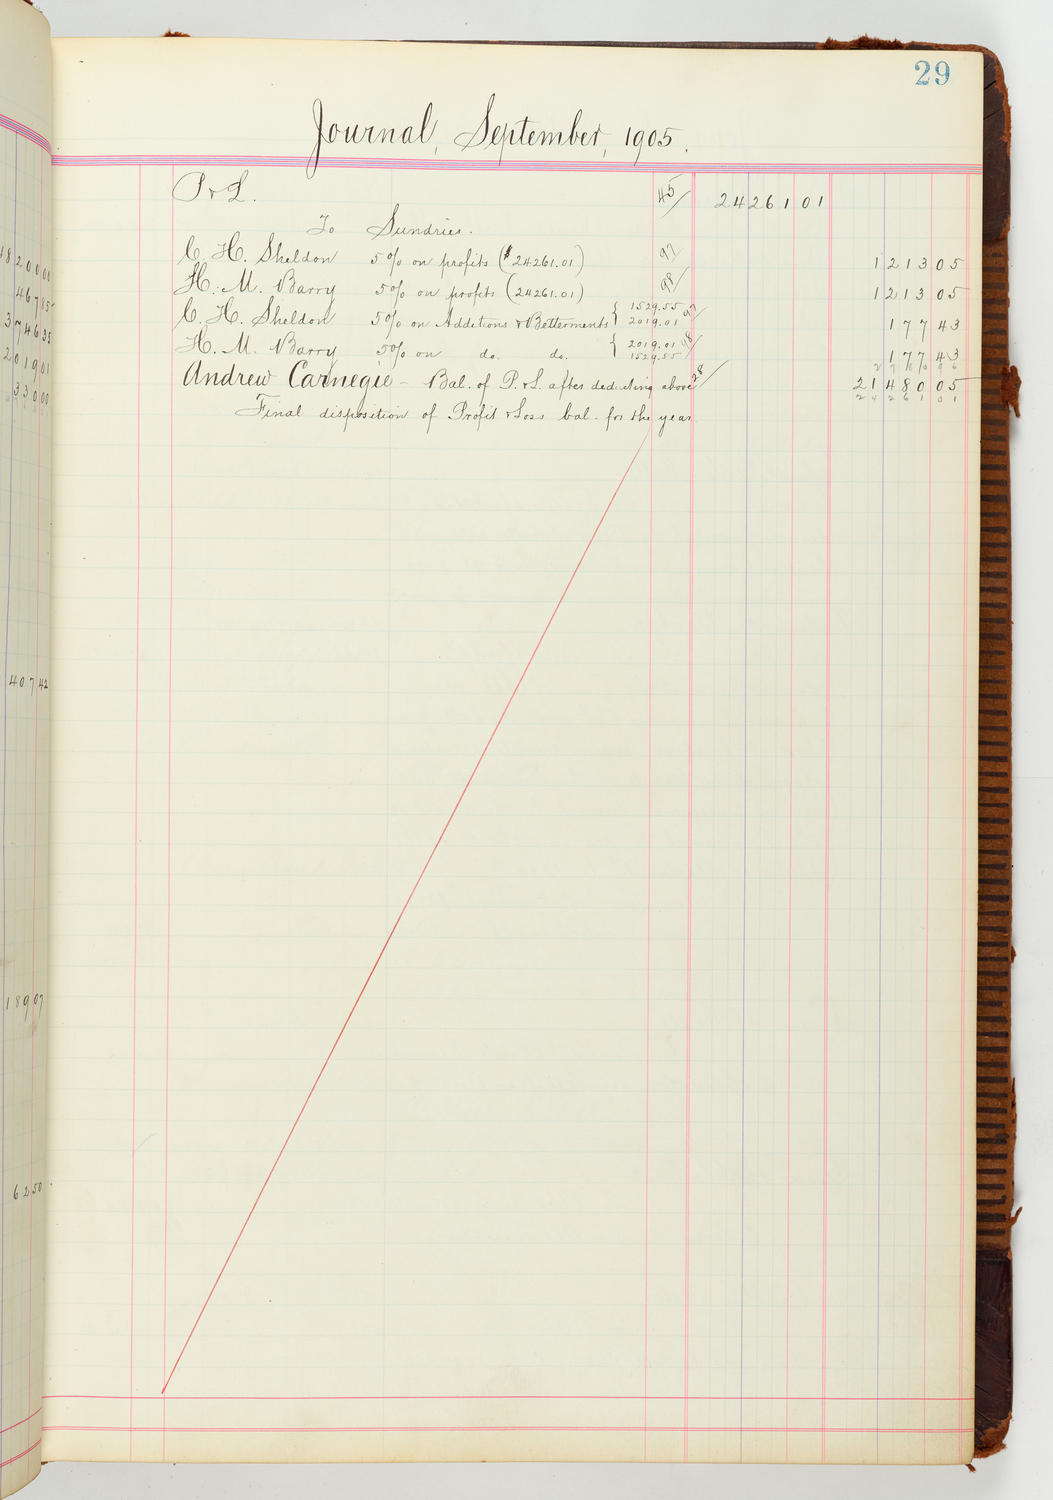 29
Journal, September, 1905.
P & L. 45/ 24261 01
To Sundries.
C. H. Sheldon 5% on profits ($24261.01) 97/ 1213 05
H. M. Barry 5% on profits (24261.01) 98/ 1213 05
C. H. Sheldon 5% on Additions & Betterments { 1529.55 2019.01 97/ 177 43
H. M. Barry 5% on do. do. { 2019.01 1529.55 98/ 177 43
2780 96
Andrew Carnegie - Bal. of P. & L. after deducting above 28/ 21480 05
24261 01
Final disposition of Profit & Loss bal. for the year
18200 00
467 85
3746 35
2019 01
330 00
407 42
189 07
62 50